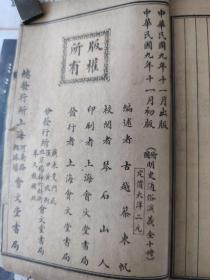 中華民國九年十一月出版
中華民國九年十一月初版
繪圖明史通俗演義全十册
定價大洋二元
編述者 古越蔡東帆
校閱者 琴石山人
印刷者 上海會文堂書局
發行者 上海會文堂書局
分發行所 會文堂書局
總發行所 上海 會文堂書局
版權所有